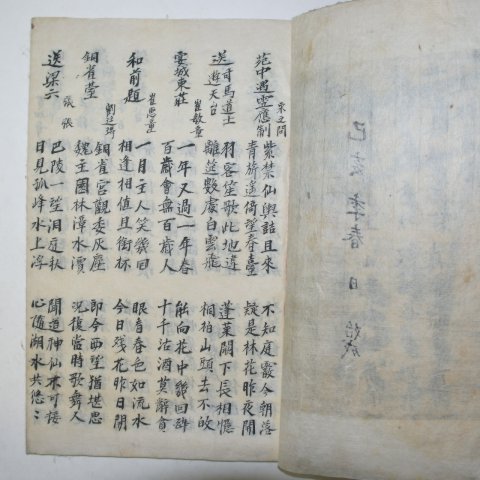 季春 日 始
苑中遇雪應制
宋之問
紫禁仙輿詰旦來
青旂遙倚望春臺
不知庭霰今朝落
疑是林花昨夜開
送司馬道士遊天台
羽客笙歌此地違
離筵數處白雲飛
蓬萊闕下長相憶
桐柏山頭去不
宴城東莊
崔敏童
一年又過一年春
百歲曾無百歲人
能向花中幾回醉
十千沽酒莫辭貧
和前題
崔惠童
一月主人笑幾回
相逢相值且銜杯
眼看春色如流水
今日殘花昨日開
銅雀臺
劉廷琦
銅雀宮觀委灰塵
魏主園林漳水濱
即今西望猶堪思
況復當時歌舞人
送梁六
張
巴陵一望洞庭秋
日見孤峰水上浮
聞道神仙不可接
心隨湖水共悠々